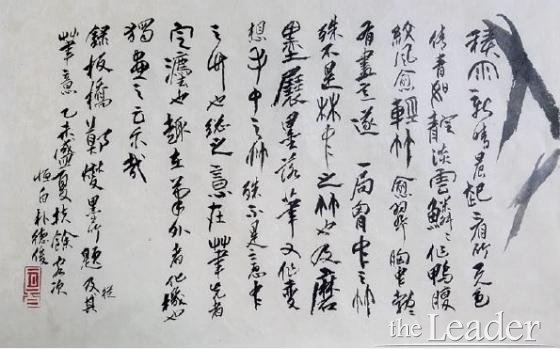 積雨新晴晨起看竹
青如靛淡雲鱗々作鴨腹
紋風愈輕竹愈翠胸中勃
有畫意遂一局胷中之竹
殊不是林中之竹也及磨
墨展墨落筆又作變
想手中之竹殊不是意中
之竹也總之意在筆先者
定灋也趣在筆外者化機也
獨畫之云乎哉
錄板橋鄭燮墨竹題及其
筆意乙未盛夏於餘
白朴德俊
the Leader